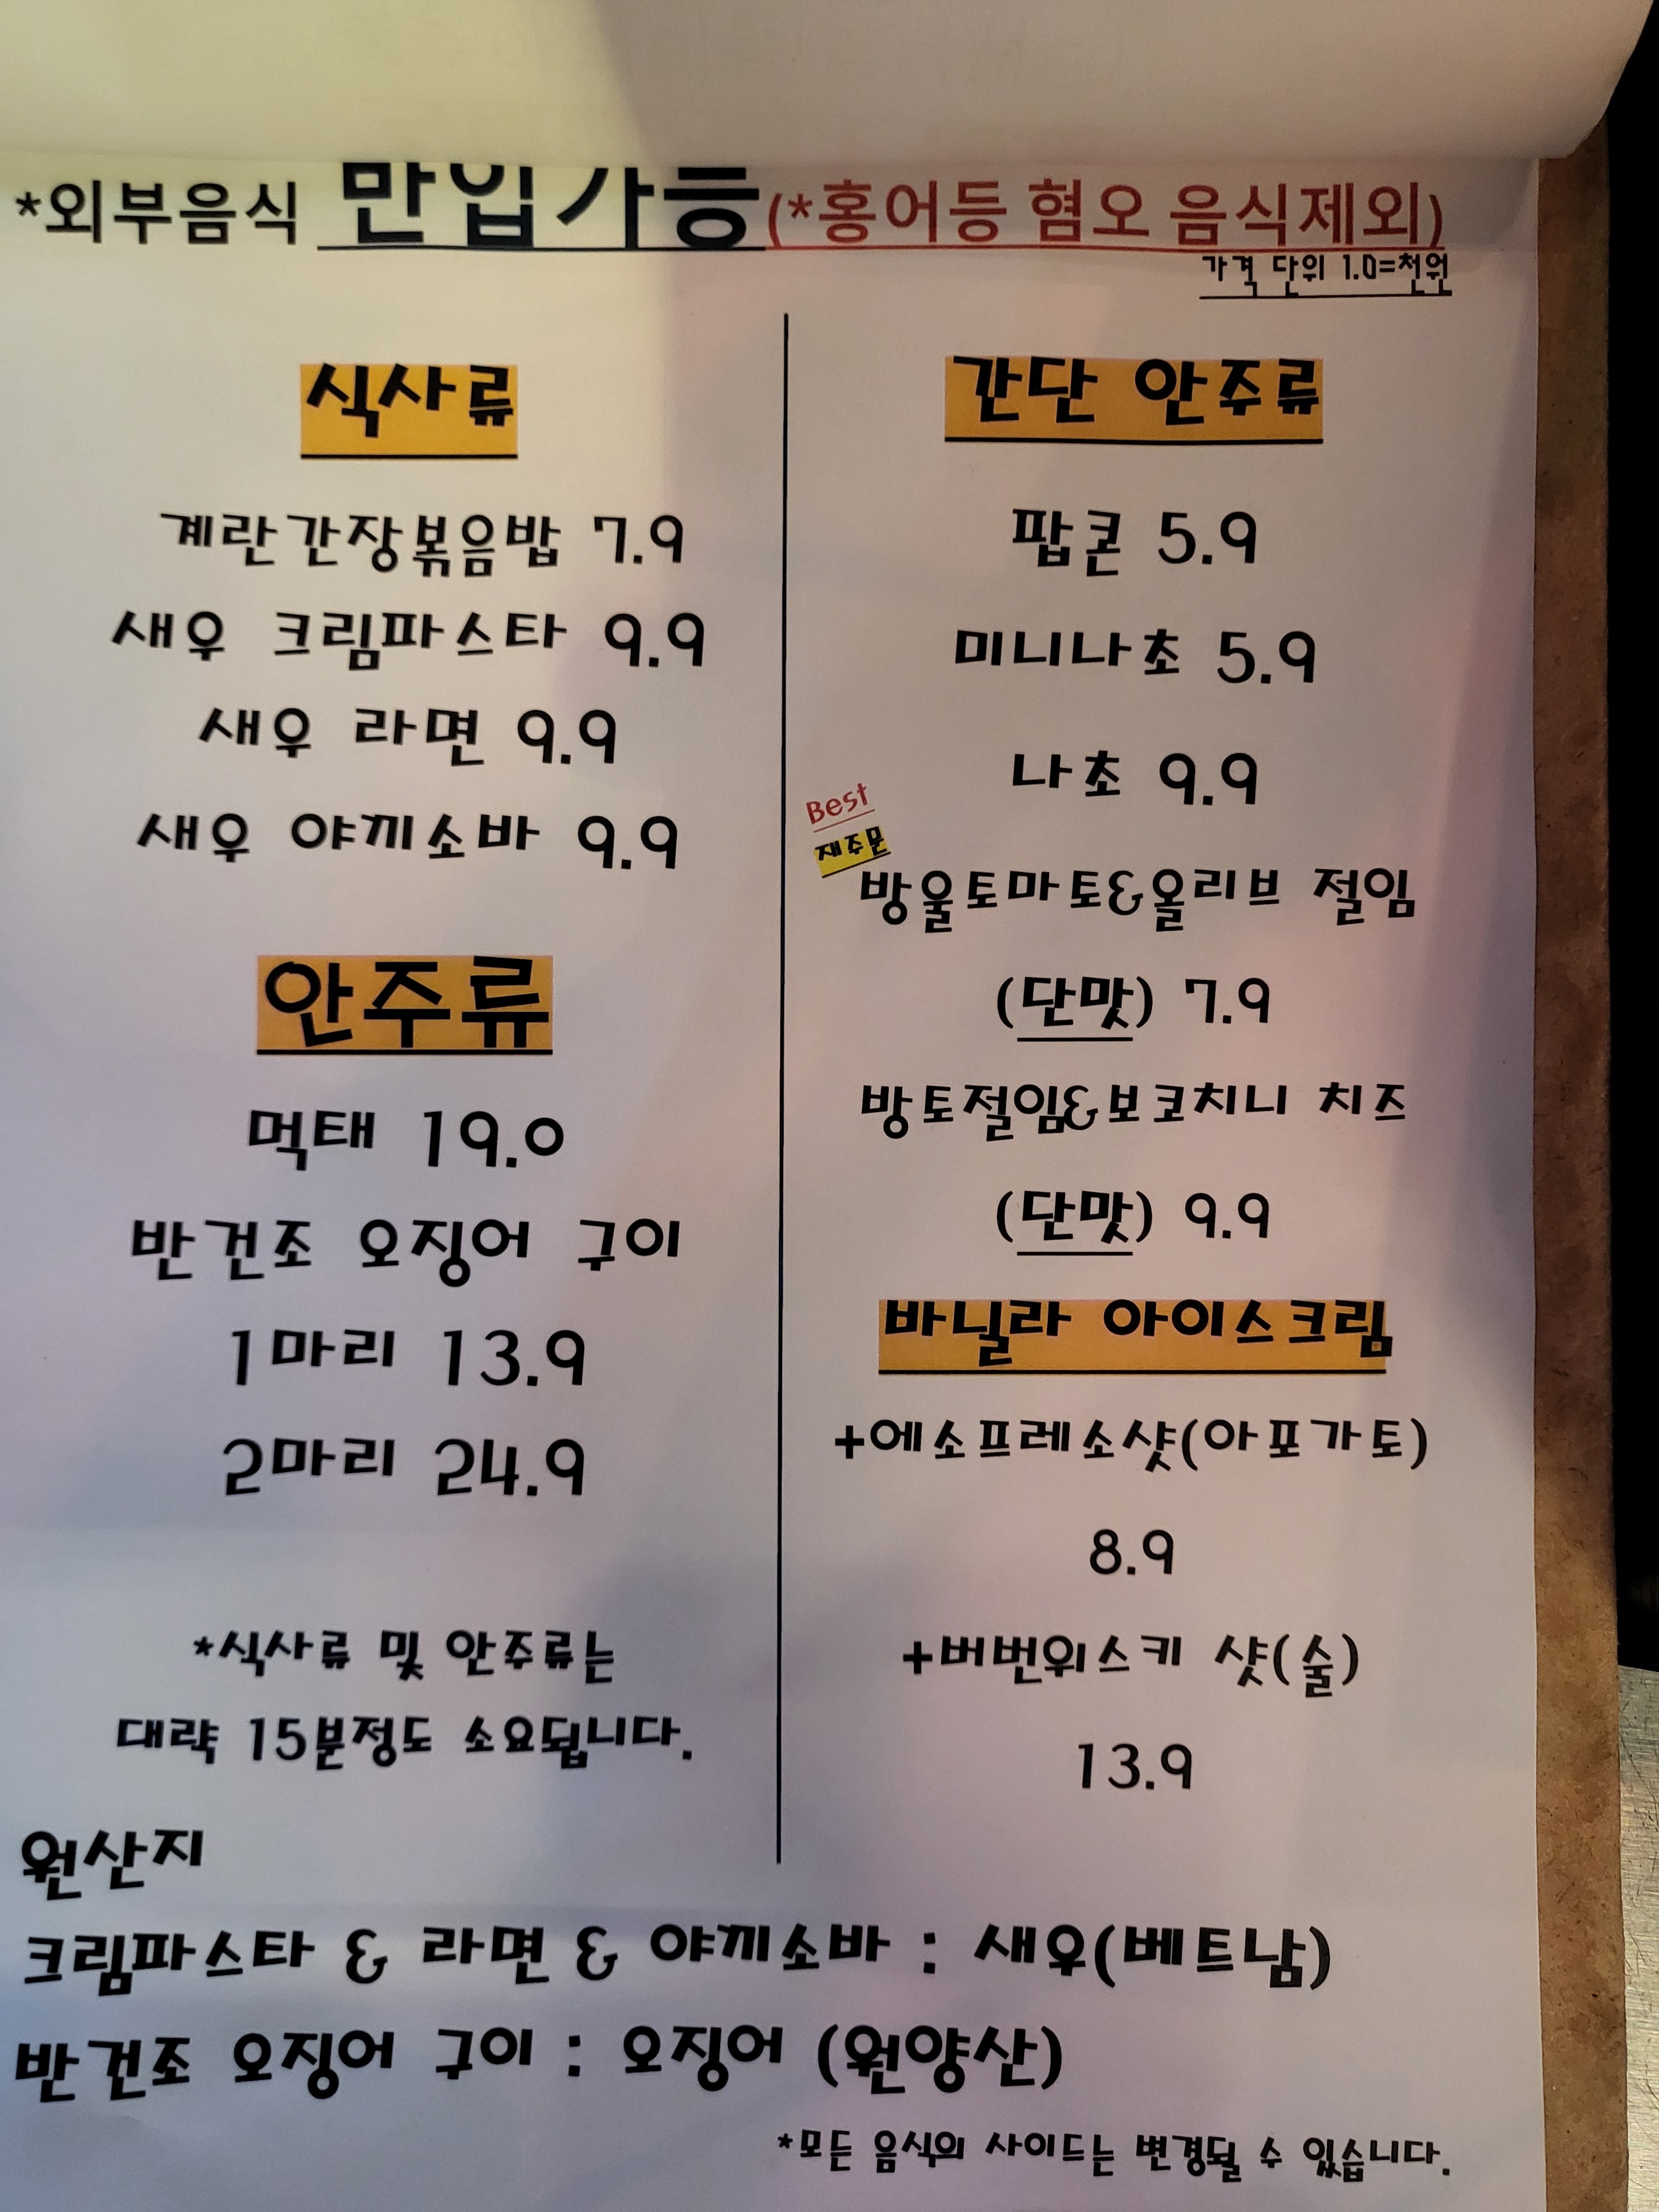 *외부음식 반입가능(*홍어등 혐오 음식제외)
가격 단위 1.0=천원
식사류
계란간장볶음밥 7.9
새우 크림파스타 9.9
새우 라면 9.9
새우 야끼소바 9.9
안주류
먹태 19.0
반건조 오징어 구이
1마리 13.9
2마리 24.9
*식사류 및 안주류는
대략 15분정도 소요됩니다.
간단 안주류
팝콘 5.9
미니나초 5.9
나초 9.9
Best
재주문
방울토마토&올리브 절임
(단맛) 7.9
방토절임&보코치니 치즈
(단맛) 9.9
바닐라 아이스크림
+에소프레소샷(아포가토)
8.9
+버번위스키 샷(술)
13.9
원산지
크림파스타 & 라면 & 야끼소바 : 새우(베트남)
반건조 오징어 구이 : 오징어 (원양산)
*모든 음식의 사이드는 변경될 수 있습니다.